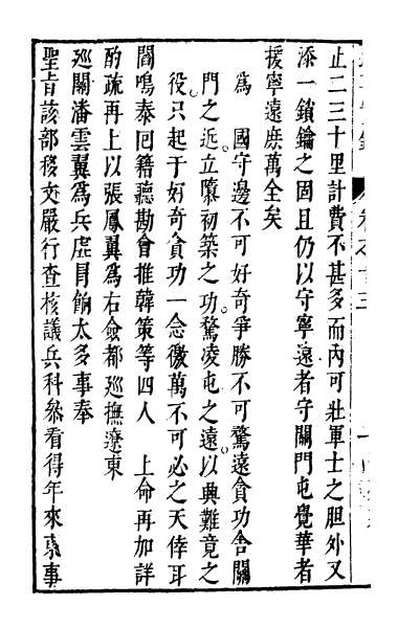 止二三十里計費不甚多而內可壯軍士之胆外又
添一鎖鑰之固且仍以守寧遠者守關門屯覺華者
援寧遠庶萬全矣
為　國守邊不可好奇爭勝不可騖遠貪功舍關
門之近立隳初築之功騖凌屯之遠以典難竟之
役只起于好奇貪功一念徼萬不可必之天倖耳
閻鳴泰回籍聽勘會推韓策等四人　上命再加詳
酌疏再上以張鳳翼為右僉都巡撫遼東
巡關潘雲翼為兵虛冐餉太多事奉
聖旨該部移文嚴行查核議兵科叅看得年來東事